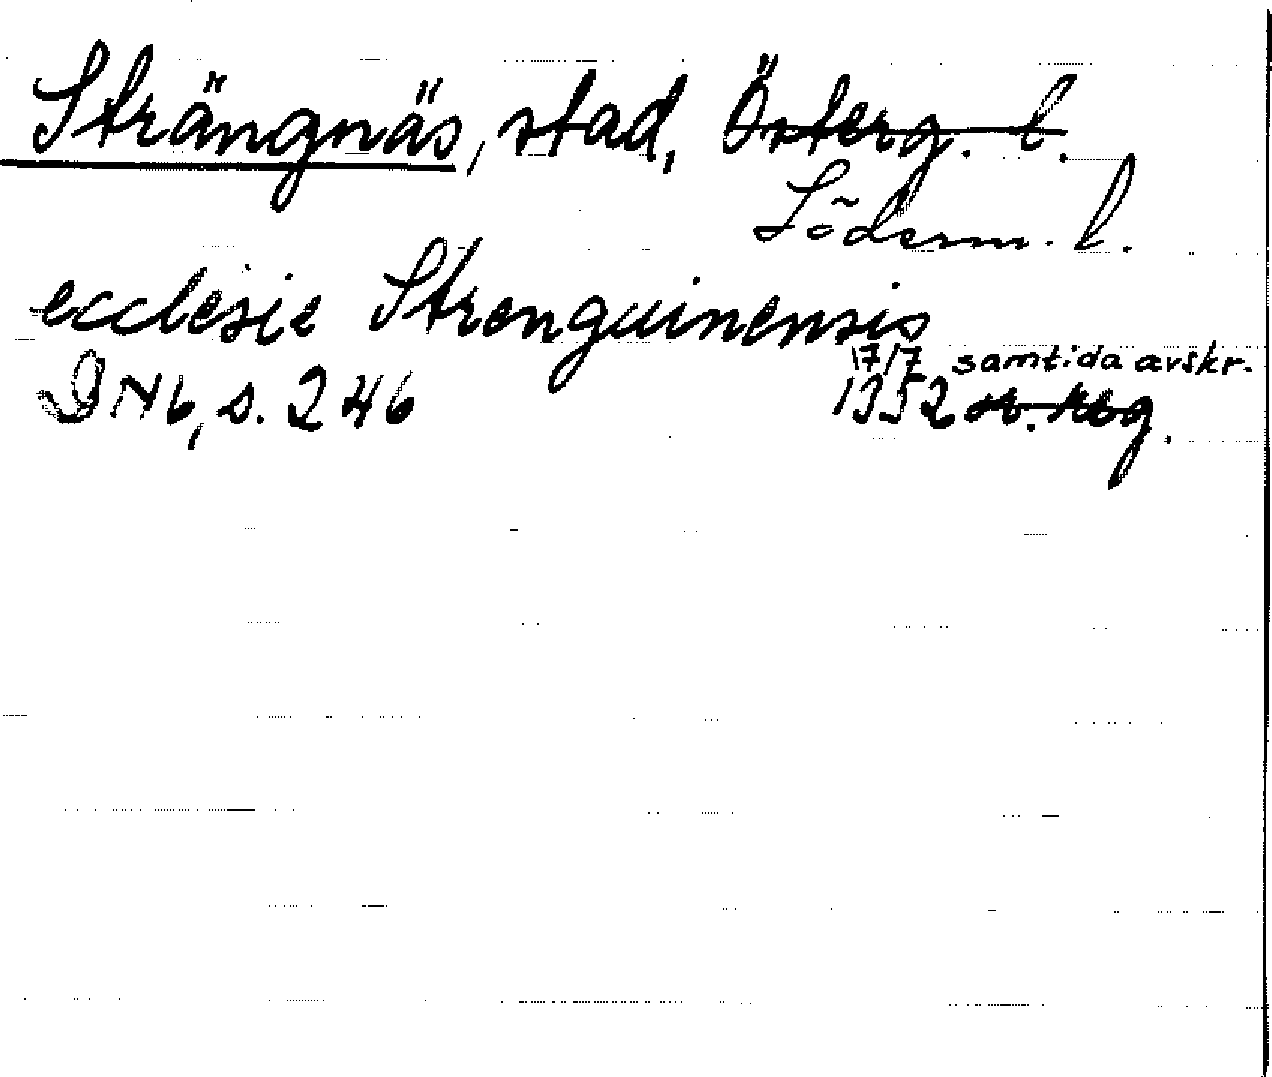 Strängnäs, stad, Österg. l.
Söderm. l.
ecclesie Strenguinensis
17/7 samtida avskr.
DN 6, s. 246 1352